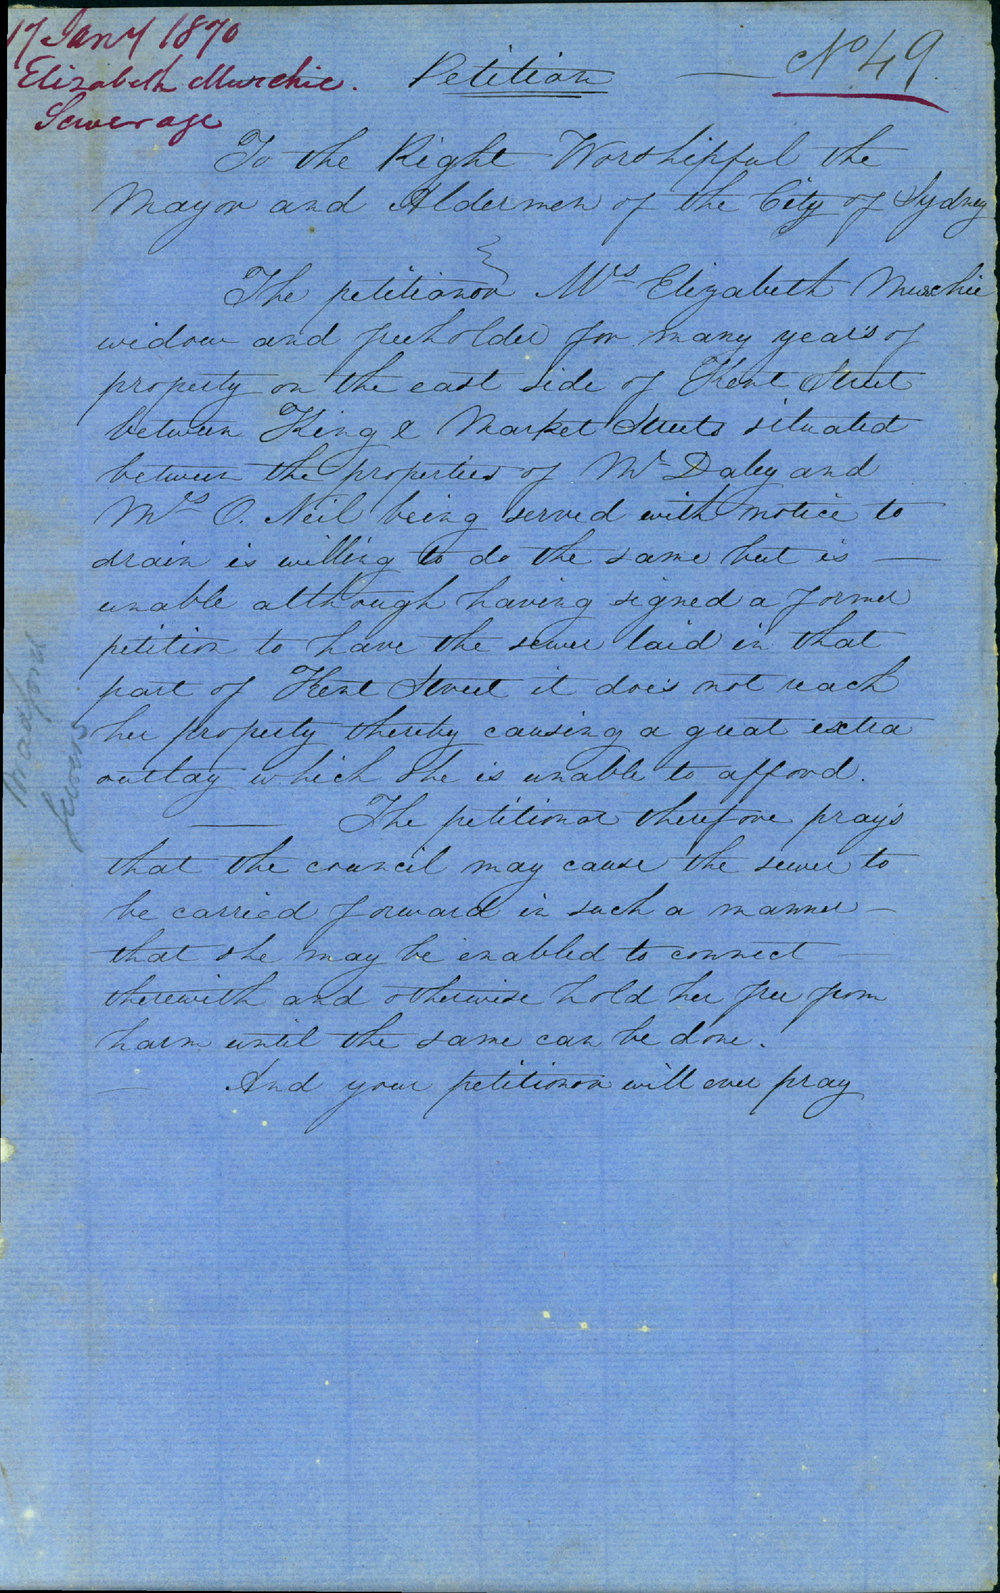 17 Jany 1870
Elizabeth Murchie.
Sewerage
Petition — No 49.
To the Right Worshipful the
Mayor and Aldermen of the City of Sydney
The petitionor Mrs Elizabeth Murchie
widow and freeholder for many years of
property on the east side of Kent Street
between King & Market Streets situated
between the properties of Mr Daley and
Mrs O. Neil being served with notice to
drain is willing to do the same but is —
unable although having signed a former
petition to have the sewer laid in that
part of Kent Street it does not reach
her property thereby causing a great extra
outlay which she is unable to afford.
— The petitionor therefore prays
that the council may cause the sewer to
be carried forward in such a manner —
that she may be enabled to connect
therewith and otherwise hold her free from
harm until the same can be done.
— And your petitionor will ever pray
Sewers